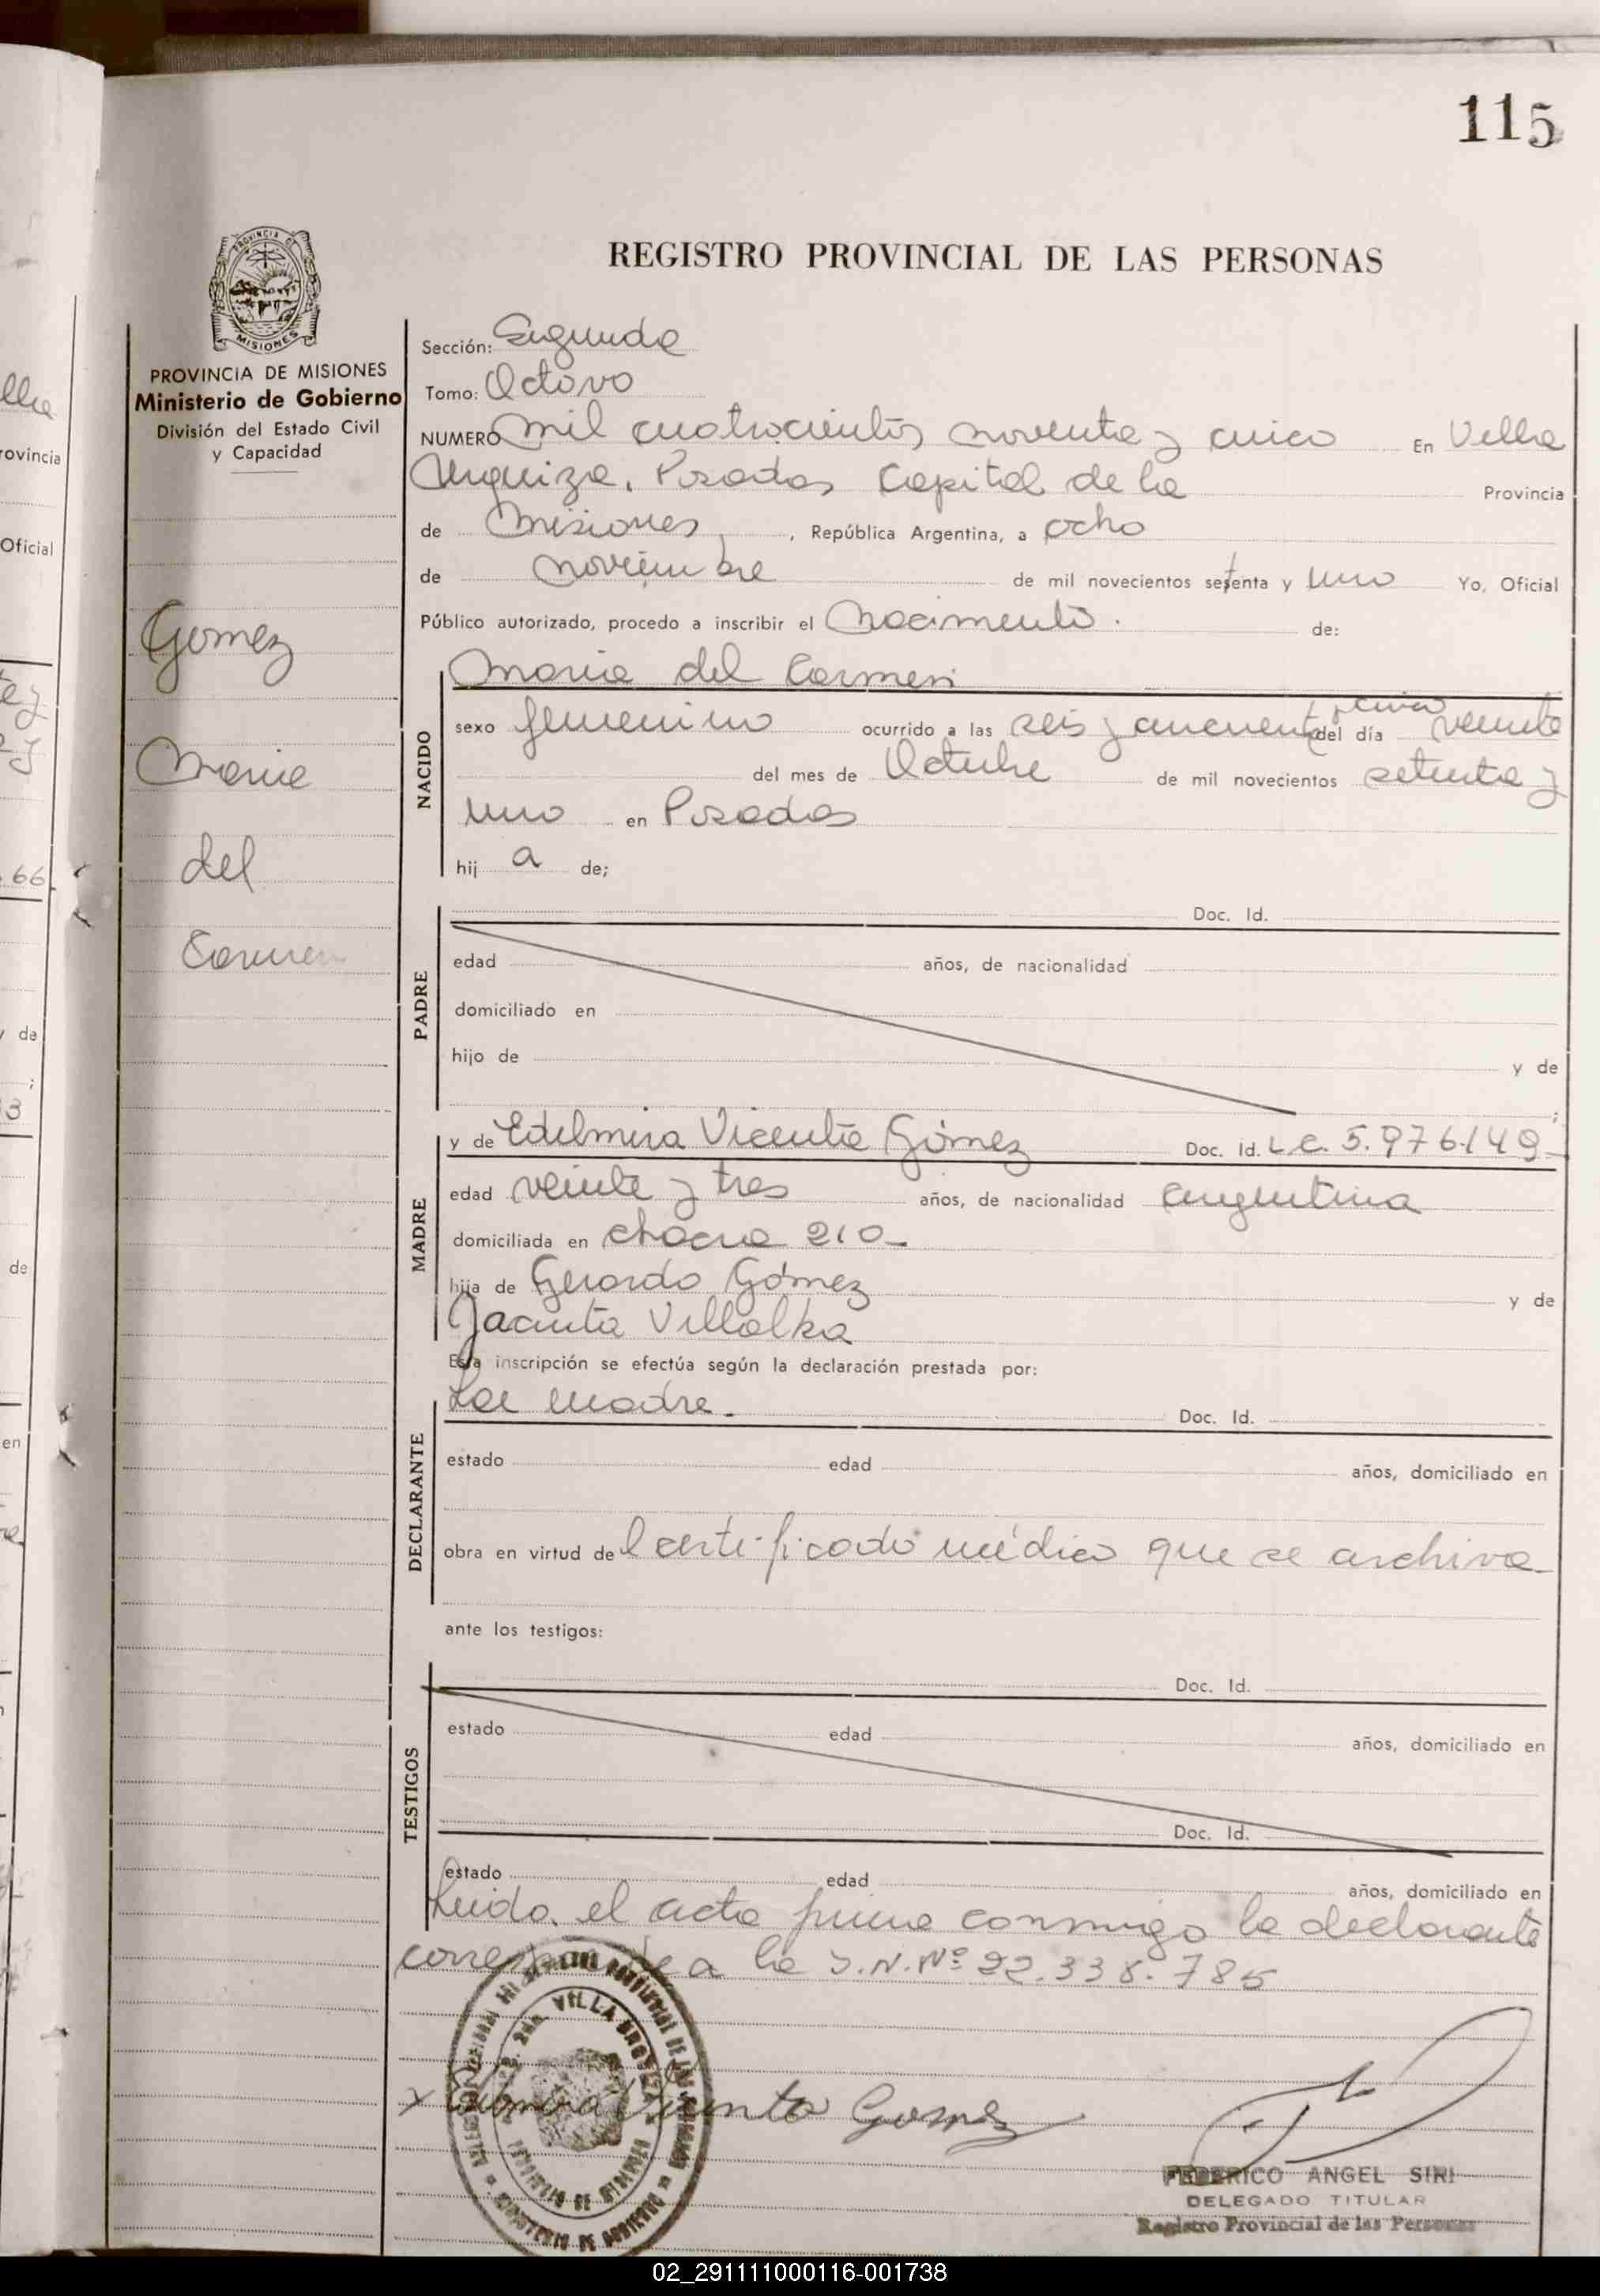 115
REGISTRO PROVINCIAL DE LAS PERSONAS
PROVINCIA DE
MISIONES
PROVINCIA DE MISIONES
Ministerio de Gobierno
División del Estado Civil
y Capacidad
Gomez
Maria
del
Carmen
Sección: Segunda
Tomo: Octavo
NUMERO mil cuatrocientos noventa y cinco En Villa
Urquiza, Posadas Capital de la Provincia
de Misiones, República Argentina, a ocho
de noviembre de mil novecientos setenta y uno Yo, Oficial
Público autorizado, procedo a inscribir el Nacimiento. de:
NACIDO
Maria del Carmen
sexo femenino ocurrido a las seis y cincuenta y cinco del día veinte
del mes de Octubre de mil novecientos setenta y
uno en Posadas
hij a de;
PADRE
Doc. Id.
edad años, de nacionalidad
domiciliado en
hijo de y de
;
MADRE
y de Edelmira Vicenta Gómez Doc. Id. L.C. 5.976.149
edad veinte y tres años, de nacionalidad argentina
domiciliada en chacra 210
hija de Gerardo Gómez y de
Jacinta Villalba
Esta inscripción se efectúa según la declaración prestada por:
DECLARANTE
La madre. Doc. Id.
estado edad años, domiciliado en
obra en virtud del certificado médico que se archiva
ante los testigos:
TESTIGOS
Doc. Id.
estado edad años, domiciliado en
Doc. Id.
estado edad años, domiciliado en
Leida el acta firma conmigo la declarante
corresponde a la I.N.Nº 22.338.785
x Edelmira Vicenta Gomez
VILLA URQUIZA
FEDERICO ANGEL SIRI
DELEGADO TITULAR
Registro Provincial de las Personas
02_291111000116-001738